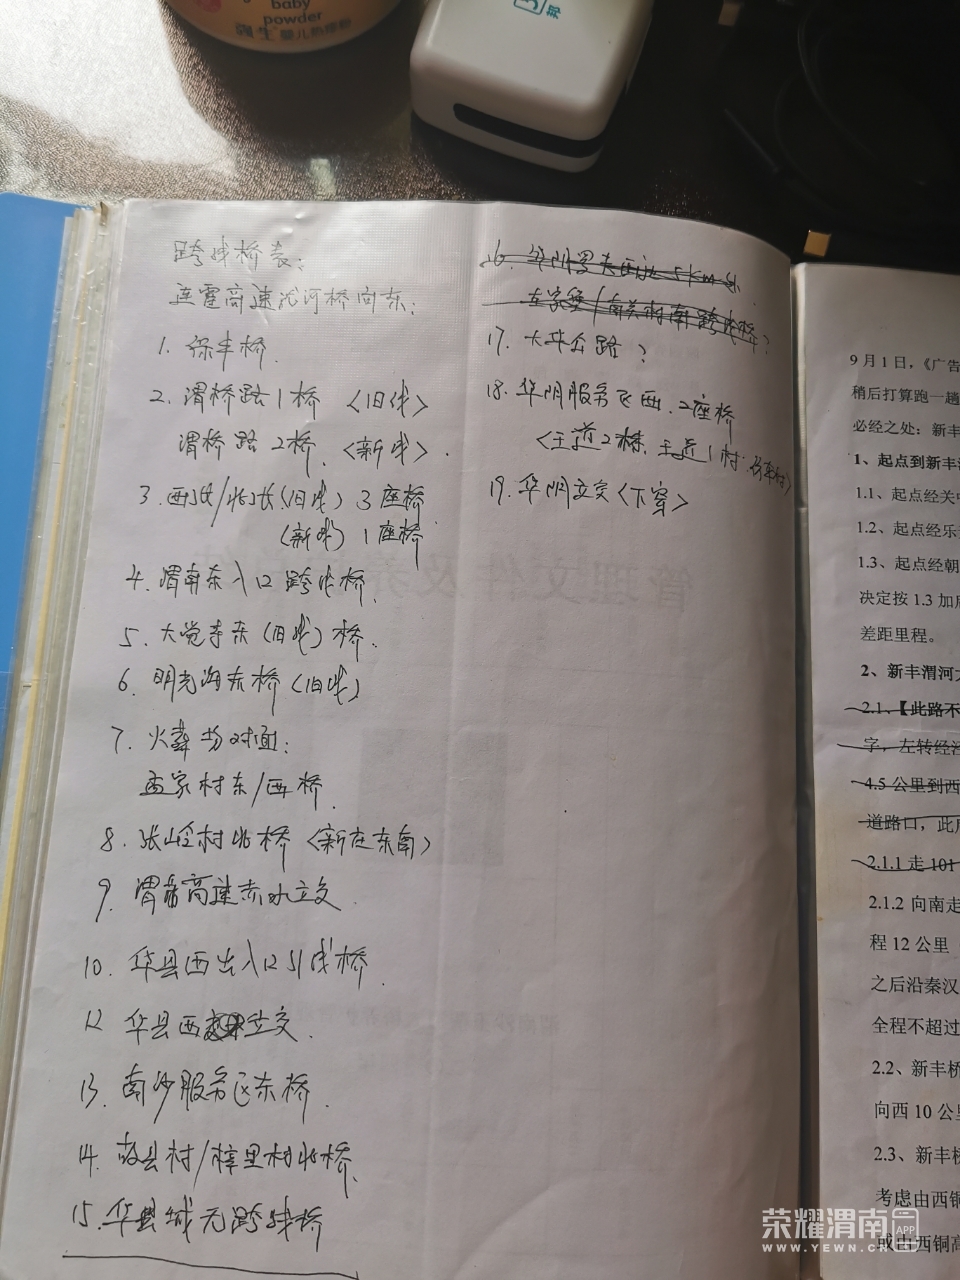 baby
powder
强生 婴儿热痱粉
跨线桥表:
连霍高速沋河桥向东:
1. 保丰桥.
2. 渭桥路1桥〈旧线〉
渭桥路2桥.〈新线〉.
3. 西张/北张(旧线)3座桥
(新线)1座桥
4. 渭南东入口跨线桥.
5. 大觉寺东(旧线)桥.
6. 明光海东桥(旧线)
7. 火葬场对面:
孟家村东/西桥.
8. 张岭村北桥〈新庄东南〉
9. 渭蒲高速赤水立交.
10. 华县西出入口引线桥.
12 华县西立交.
13. 南沙服务区东桥.
14. 故县村/梓里村北桥.
15. 华县城无跨线桥
16. 华阴罗夫西边5km处
左家堡/南关村南跨线桥?
17. 大华公路?
18. 华阴服务区西.2座桥
〈王道2村、王道1村
19. 华阴立交〈下穿〉
管理文件及
9月1日,《广告
稍后打算跑一趟
必经之处:新丰
1、起点到新丰
1.1、起点经关中
1.2、起点经乐
1.3、起点经朝
决定按1.3加
差距里程。
2、新丰渭河
2.1、【此路不
字,左转经
4.5公里到西
道路口,此
2.1.1走101
2.1.2向南走
程12公里
之后沿秦汉
全程不超过
2.2、新丰桥
向西10公里
2.3、新丰桥
考虑由西铜
或由西铜高
荣耀渭南 APP
WWW.YEWN.CN